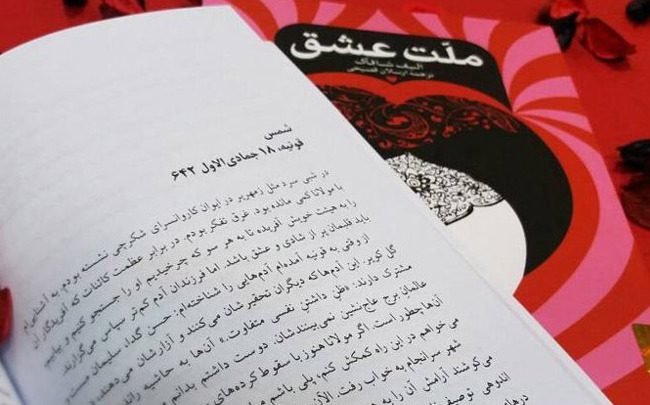 ملّت عشق
الیف شافاک
ترجمهٔ ارسلان فصیحی
شمس
قونیه، ۱۸ جمادی‌الاول ۶۴۲
در شبی سرد مثل زمهریر در ایوان کاروانسرای شکرچی نشسته بودم. به آشنایی‌ام
با مولانا کمی مانده بود. غرق تفکر بودم. در برابر عظمت کائنات که آفریدگار آن
را به هیئت خویش آفریده تا به هر سو که چرخیدیم او را جستجو کنیم و بیابیم
باید قلبمان پر از شادی و عشق باشد. اما فرزندان آدم کم‌تر سپاس می‌گزارند.
از وقتی به قونیه آمده‌ام آدم‌هایی را شناخته‌ام: حسن گدا، سلیمان مست و
گل کویر. این آدم‌ها که دیگران تحقیرشان می‌کنند و آزارشان می‌دهند،
مشترک دارند: «ظن داشتنِ نفسی متفاوت.» آن‌ها به حاشیه رانده
عالمانِ برج عاج‌نشین نمی‌بینندشان. دوست داشتم بدانم
آن‌ها چطور است. اگر مولانا هنوز با سقوط کرده‌های
می‌خواهم در این راه کمکش کنم، پلی باشم
شهر سرانجام به خواب رفت. الآن
می‌کوشند آرامش آن را به هم
اندوهی توصیف
درهای